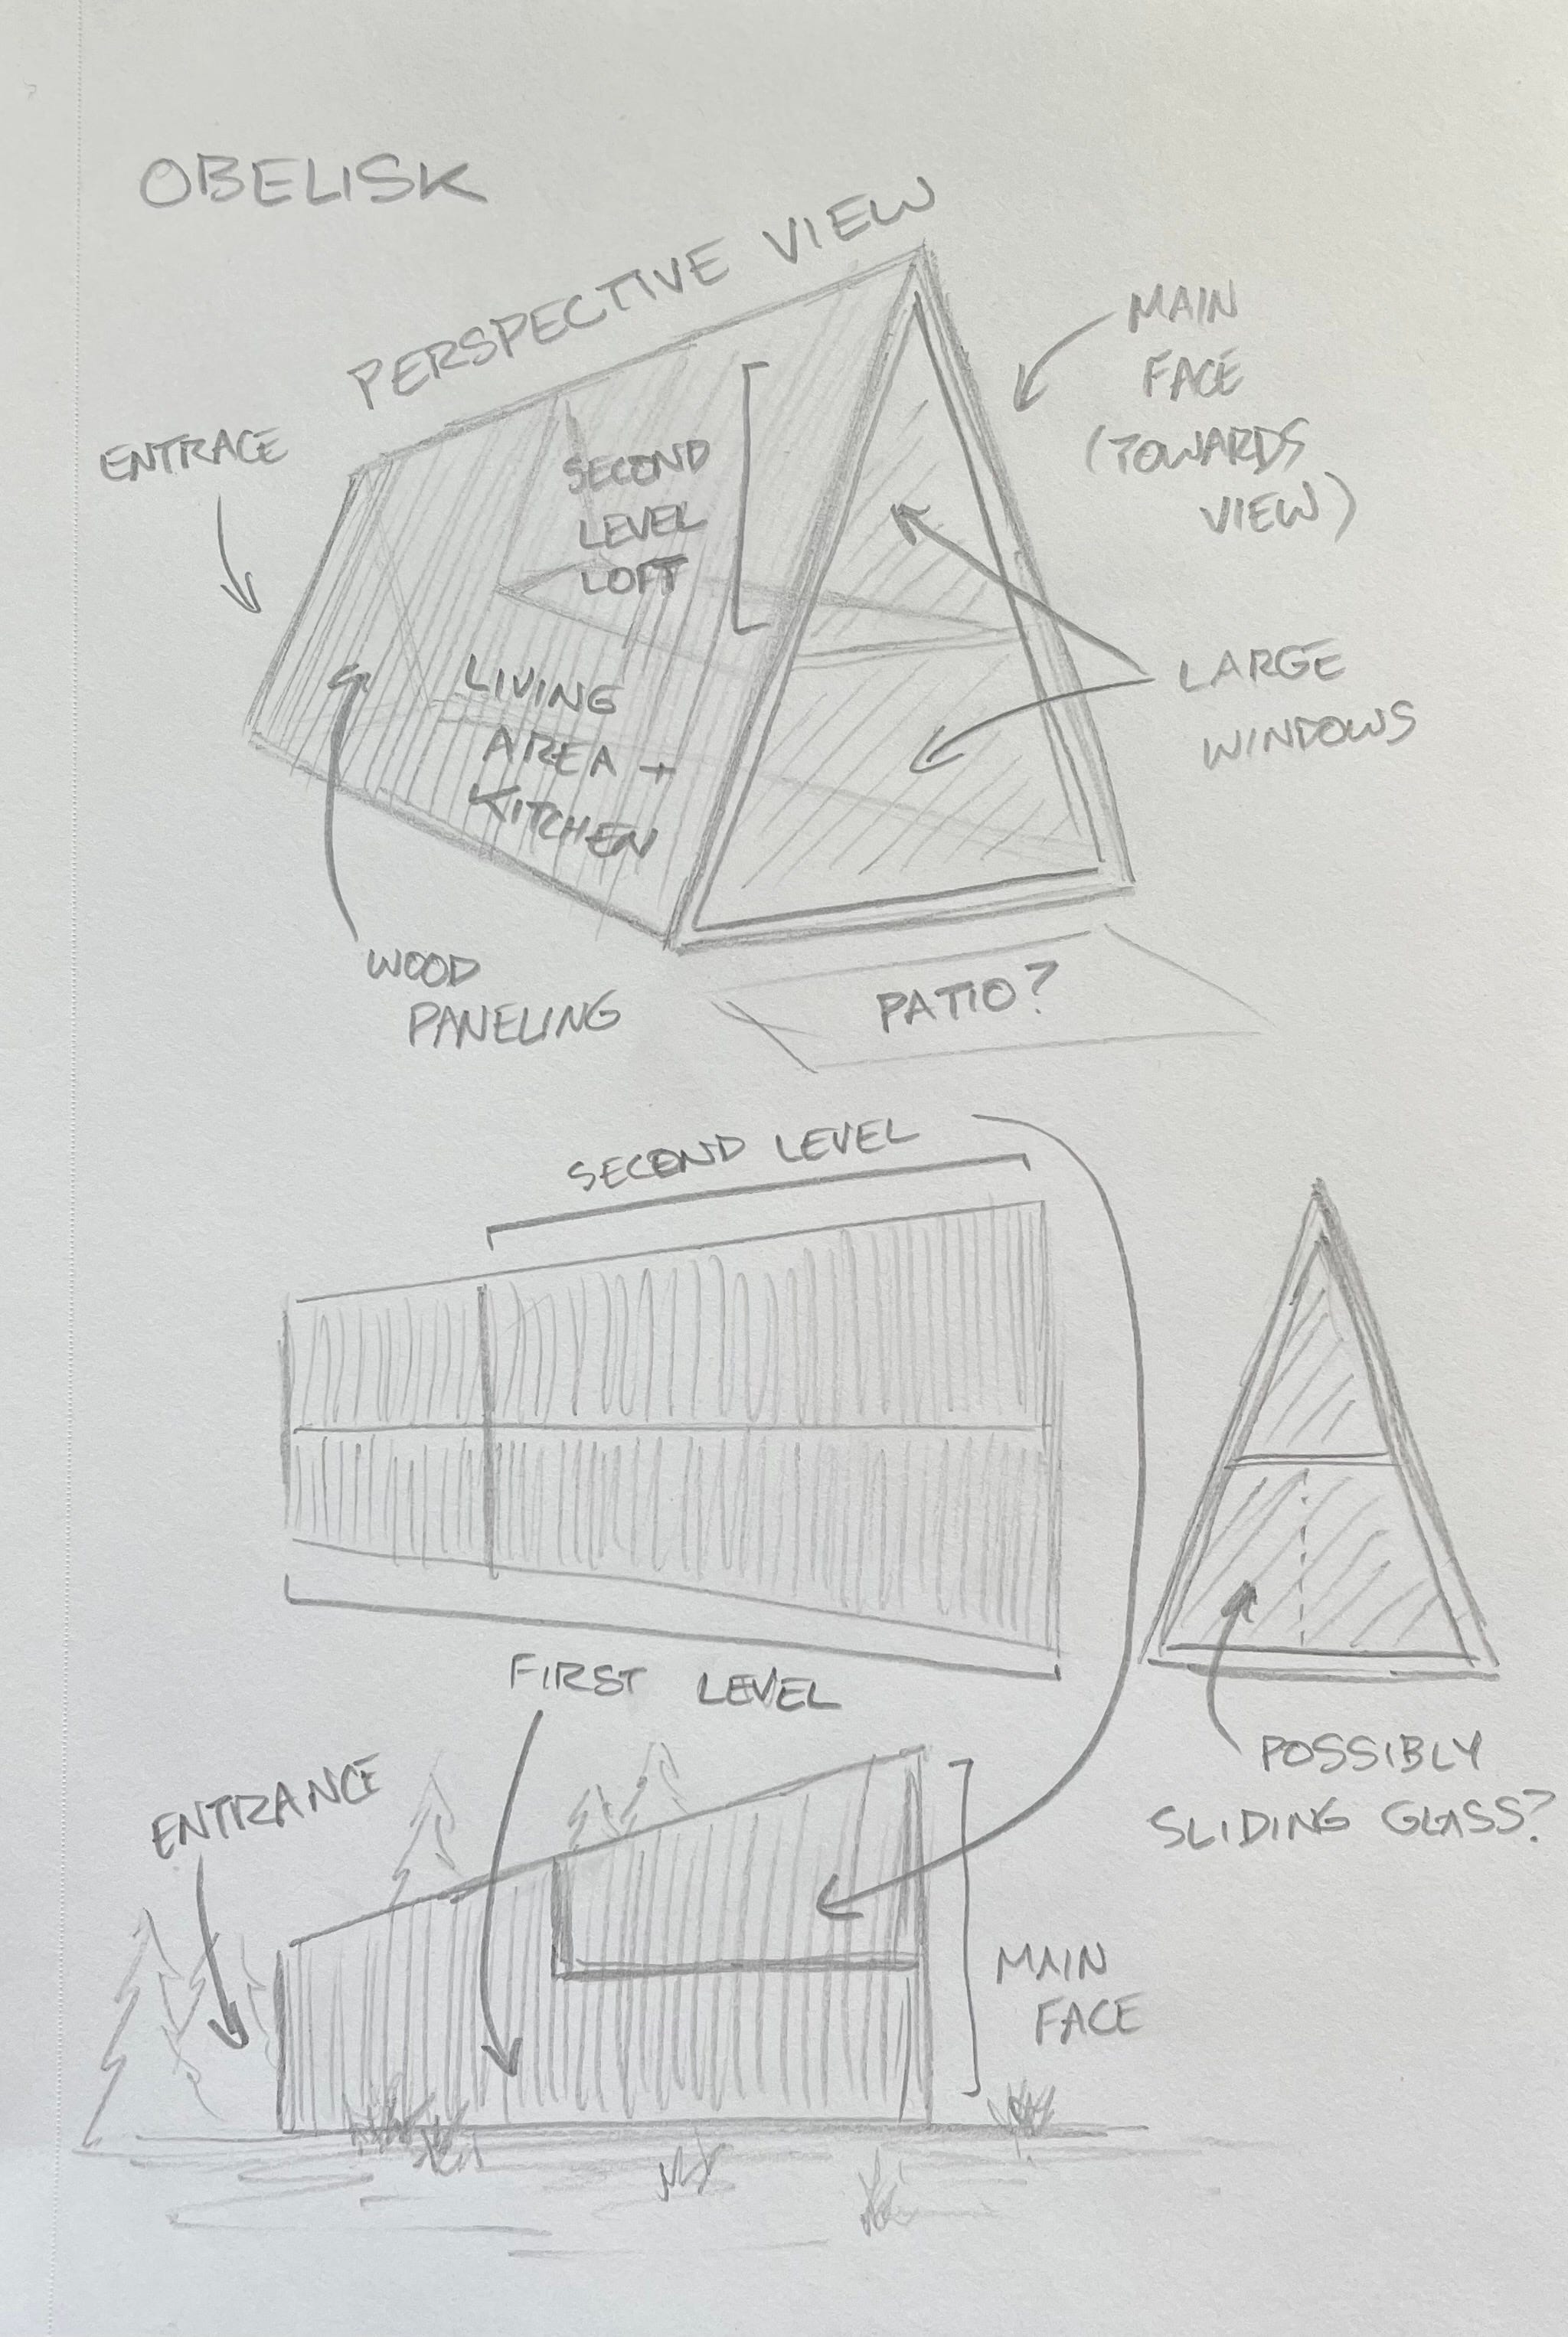 OBELISK
PERSPECTIVE VIEW
ENTRACE
MAIN
FACE
(TOWARDS
VIEW)
SECOND
LEVEL
LOFT
LIVING
AREA +
KITCHEN
LARGE
WINDOWS
WOOD
PANELING
PATIO?
SECOND LEVEL
FIRST LEVEL
POSSIBLY
SLIDING GLASS?
ENTRANCE
MAIN
FACE